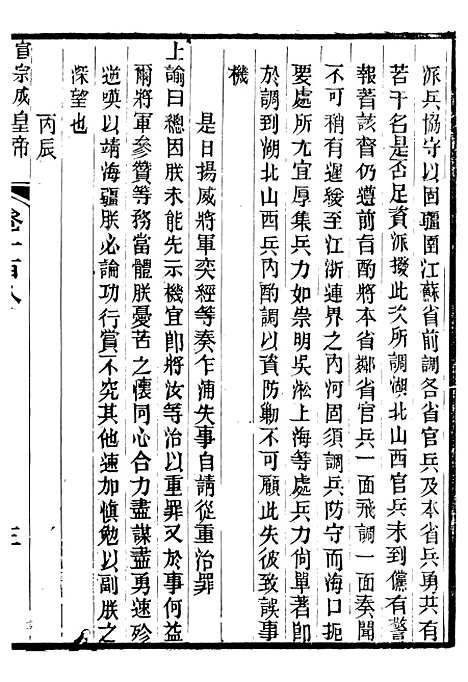 派兵協守以固疆圉江蘇省前調各省官兵及本省兵勇共有
若干名是否足資派撥此次所調湖北山西官兵未到儻有警
報著該督仍遵前旨酌將本省鄰省官兵一面飛調一面奏聞
不可稍有遲緩至江浙連界之內河固須調兵防守而海口扼
要處所尤宜厚集兵力如崇明吳淞上海等處兵力尙單著卽
於調到湖北山西兵內酌調以資防勦不可顧此失彼致誤事
機
是日揚威將軍奕經等奏乍浦失事自請從重治罪
上諭曰總因朕未能先示機宜卽將汝等治以重罪又於事何益
爾將軍參贊等務當體朕憂苦之懷同心合力盡謀盡勇速殄
逆喫以靖海疆朕必論功行賞不究其他速加愼勉以副朕之
深望也
丙辰
宣宗成皇帝
卷一百八
三